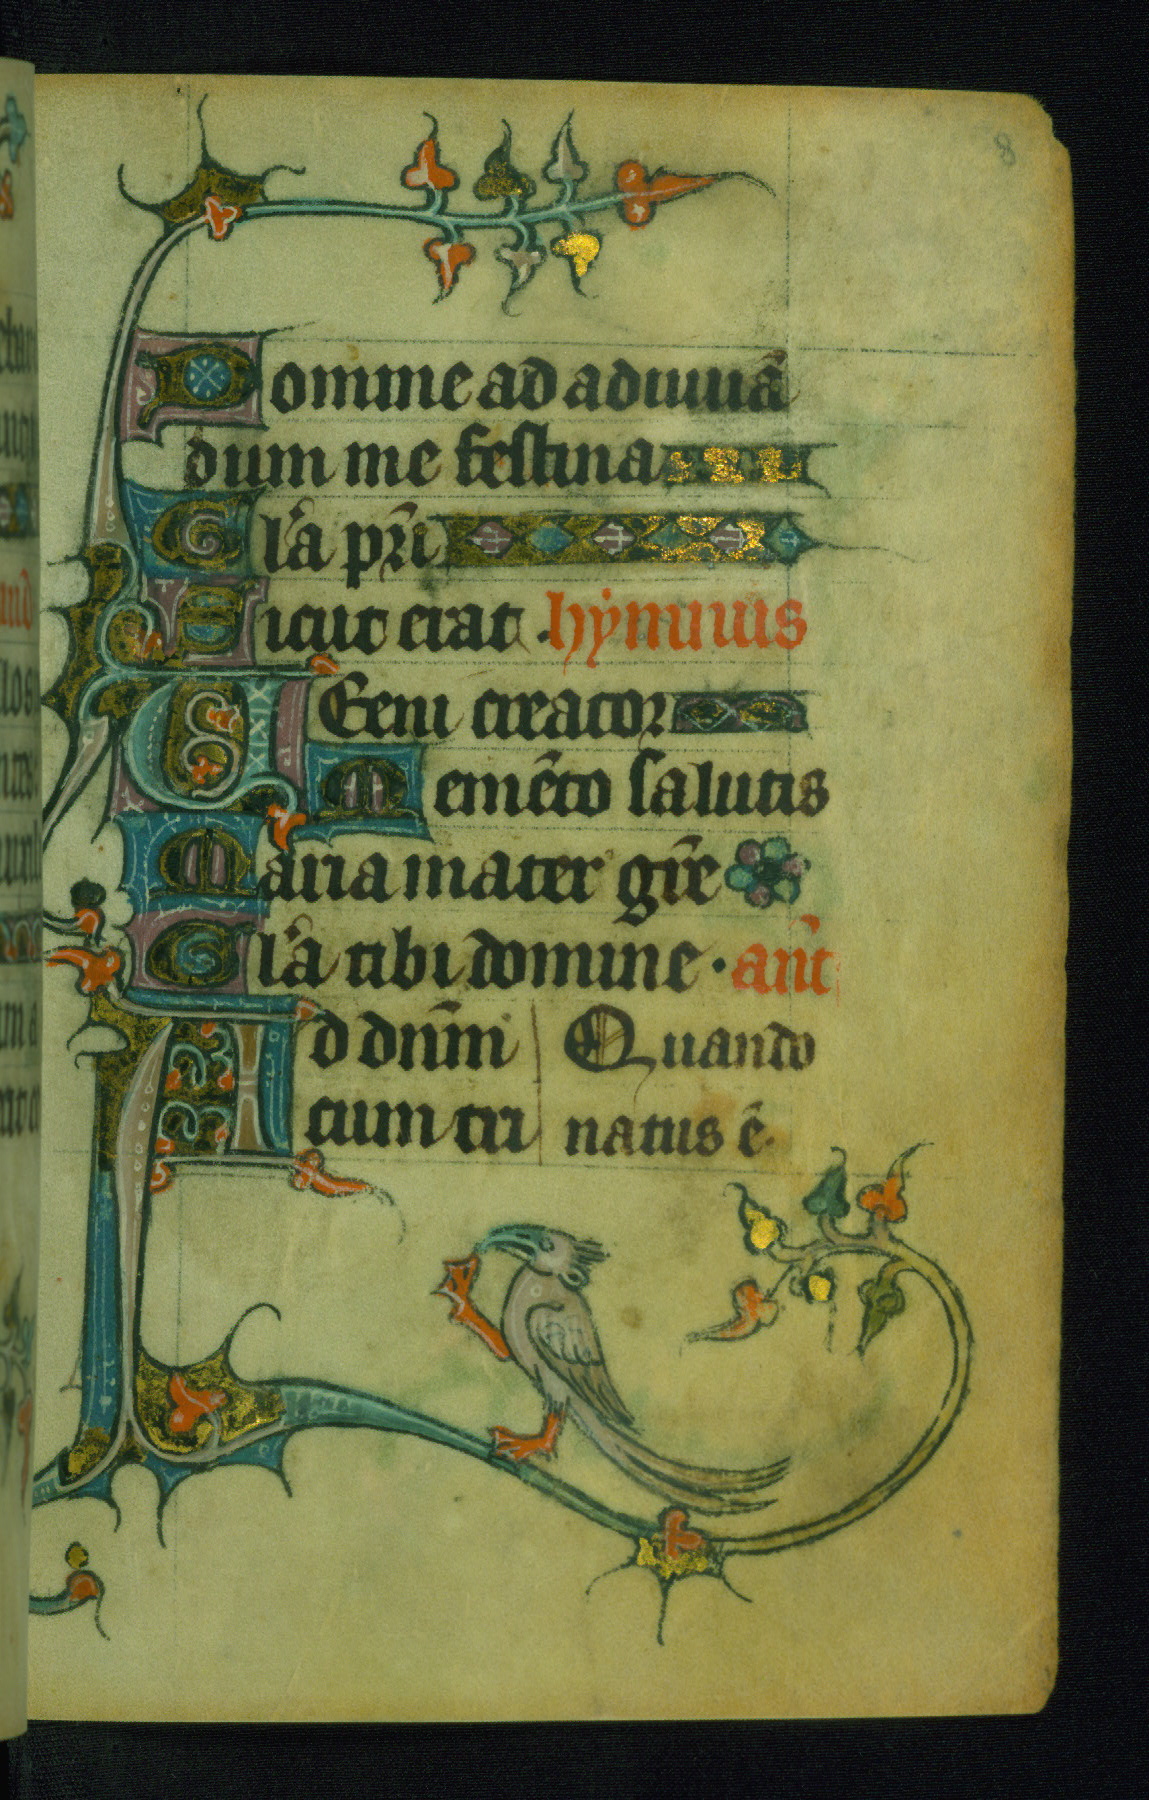 8
Domine ad adiuuã
dum me festina
Gl'a pr̃i
Sicut erat. hẏmnus
Ueni creator
Memẽto salutis
Maria mater gr̃e
Gl'a tibi domine · añt
Ad dnm̃ Quando
cum tri natus ẽ.